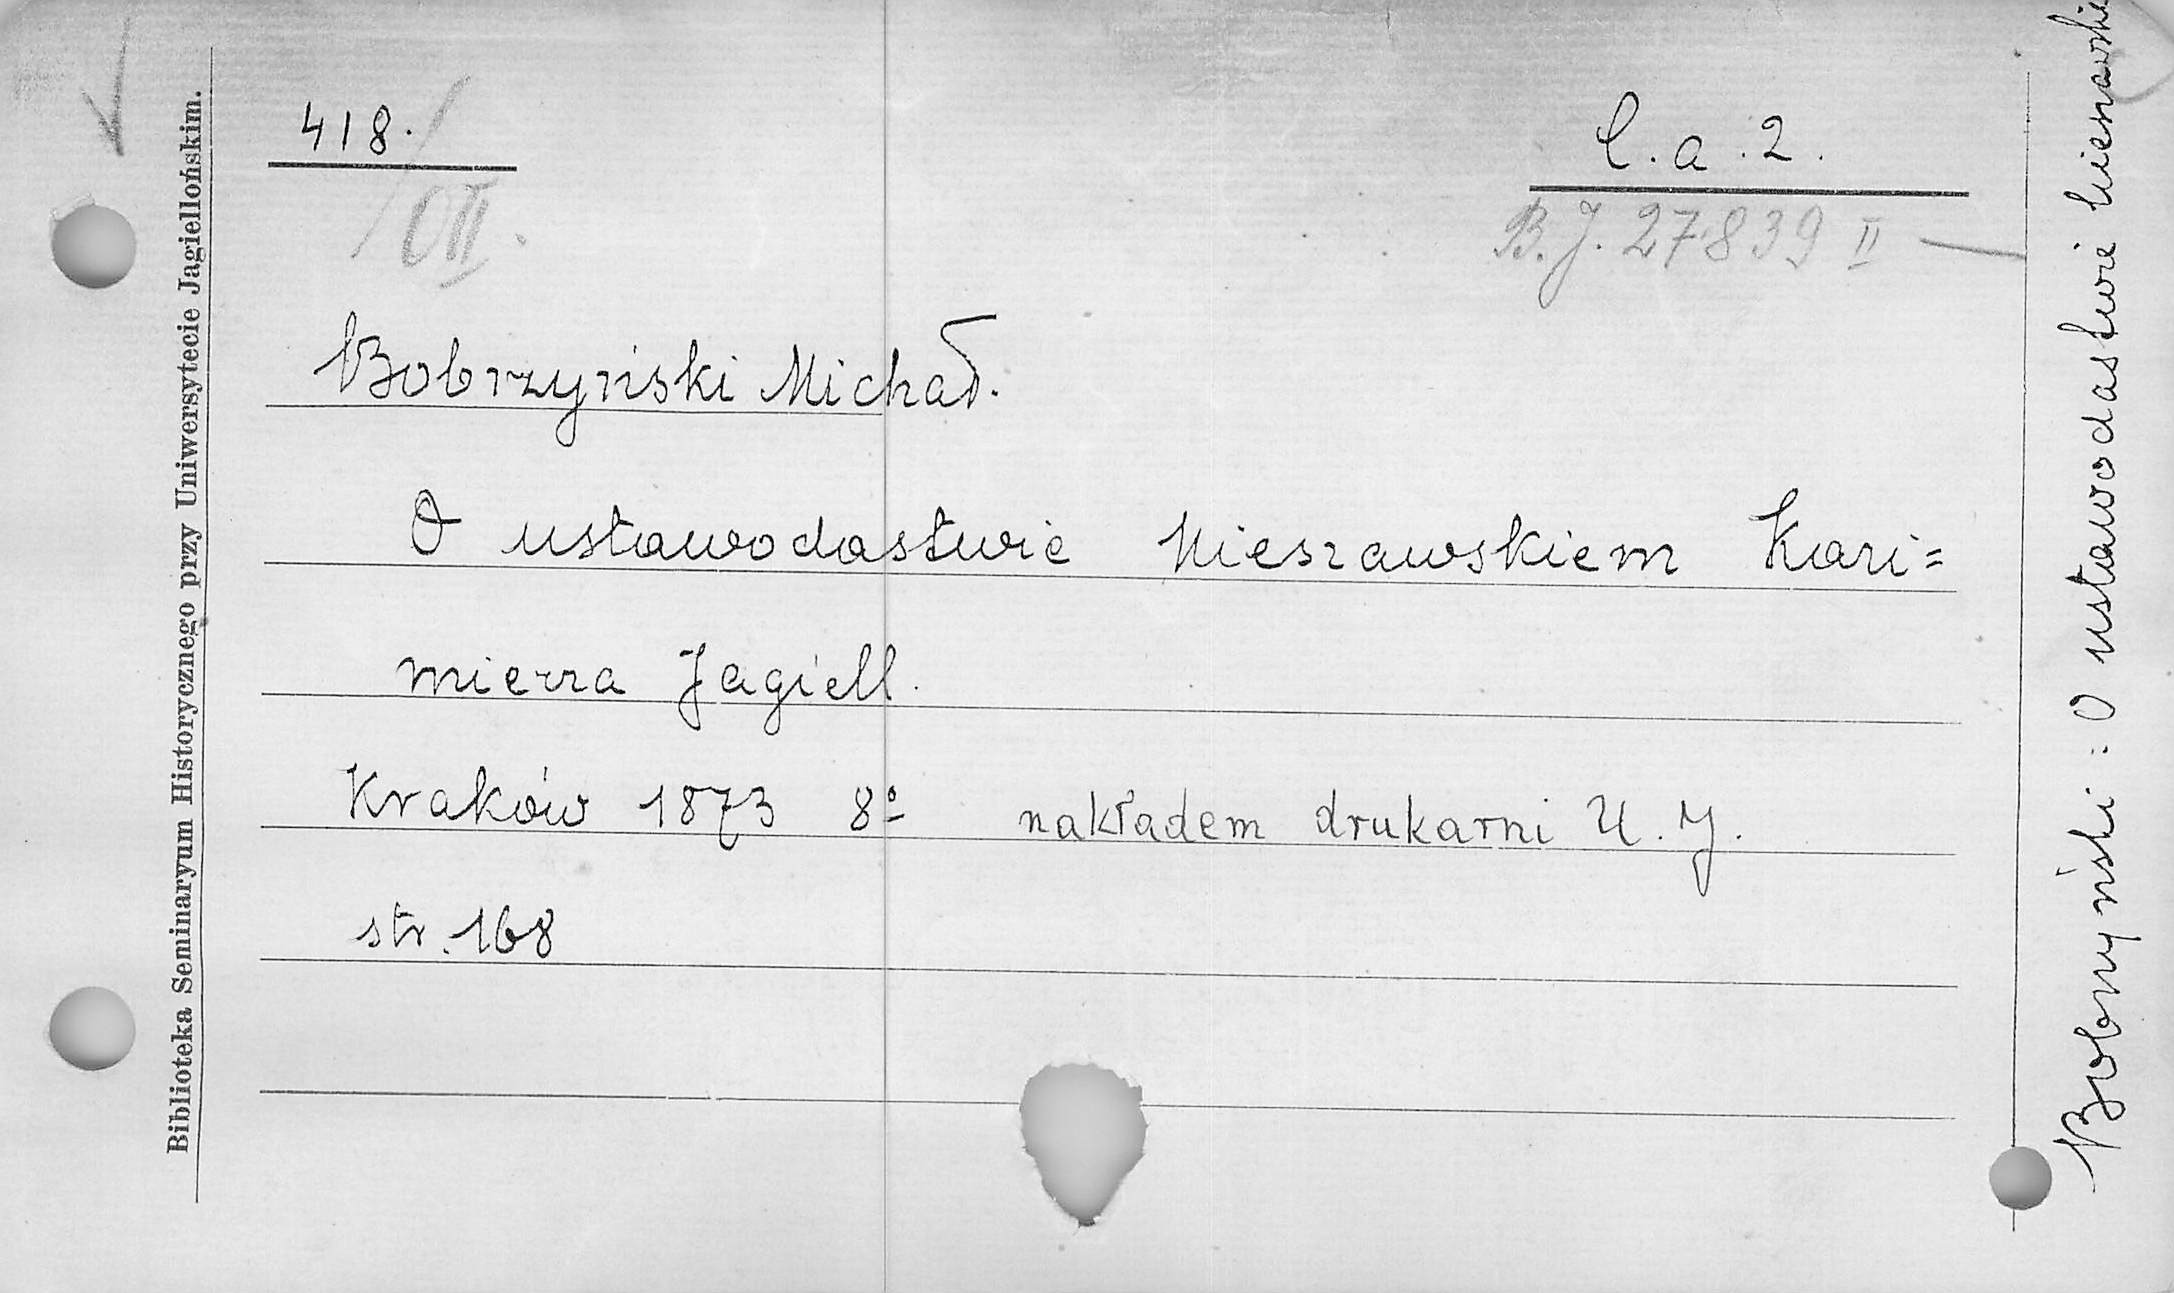 Biblioteka Seminaryum Historycznego przy Uniwersytecie Jagiellońskim.
418.
C.a.2.
B.J. 27839 II
Bobrzyński Michał.
O ustawodastwie Nieszawskiem Kazi=
mierza Jagiell.
Kraków 1873 8º nakładem drukarni U. J.
str. 168
Bobrzyński: O ustawodastwie